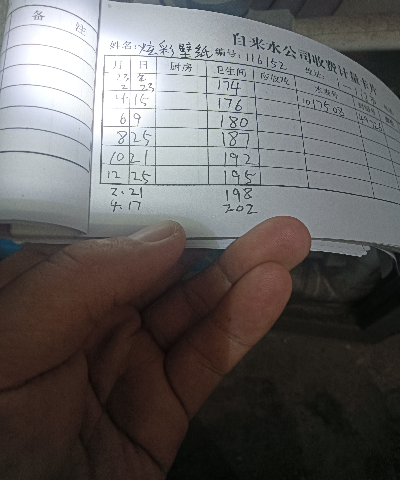 备 注
自来水公司收费计量卡片
姓名:炫彩壁纸 编号:116152
月 日 厨房 卫生间
2 23 174
4 15 176
6 9 180
8 25 187
10 21 192
12 25 195
2.21 198
4.17 202